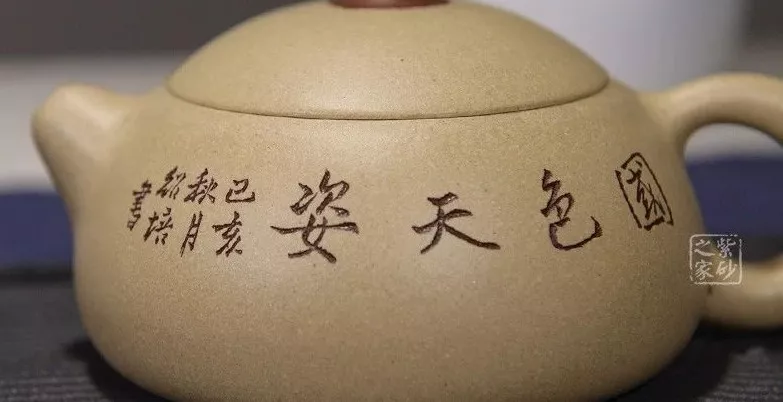 國色天姿
己亥
秋月
紹培
書
紫砂
之家